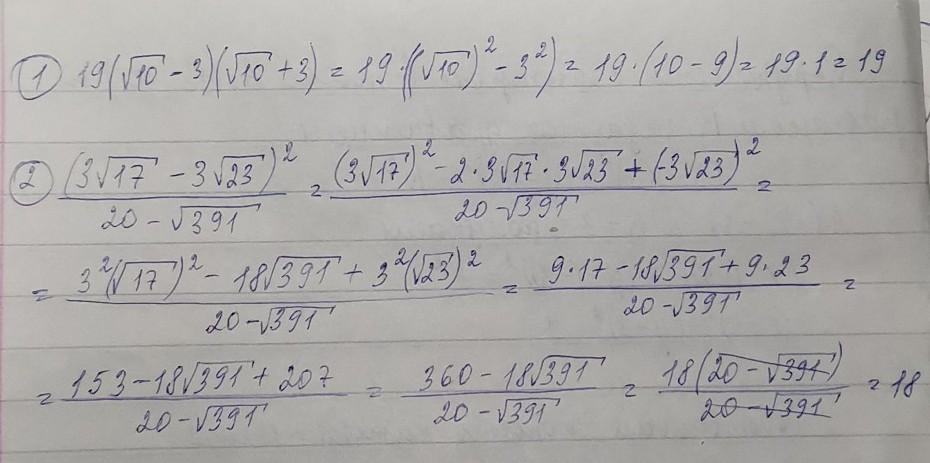 ① 19(√10 - 3)(√10 + 3) = 19·((√10)² - 3²) = 19·(10 - 9) = 19·1 = 19
② (3√17 - 3√23)² / (20 - √391) = ((3√17)² - 2·3√17·3√23 + (-3√23)²) / (20 - √391) =
= (3²(√17)² - 18√391 + 3²(√23)²) / (20 - √391) = (9·17 - 18√391 + 9·23) / (20 - √391) =
= (153 - 18√391 + 207) / (20 - √391) = (360 - 18√391) / (20 - √391) = 18(20 - √391) / (20 - √391) = 18